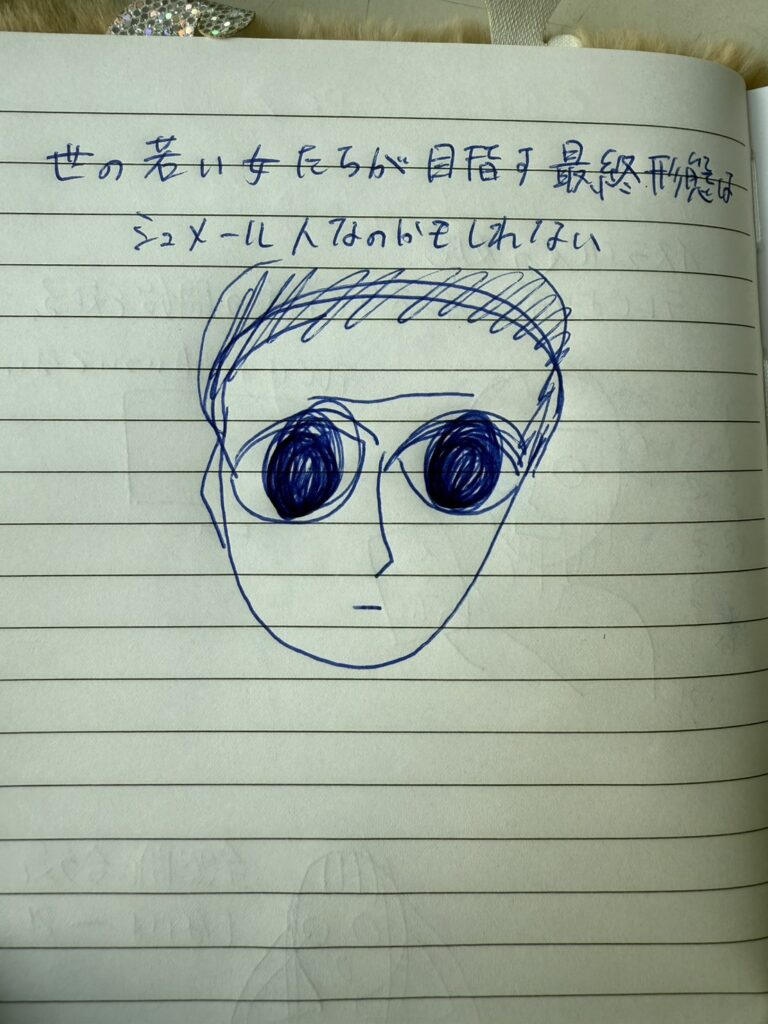 世の若い女たちが目指す最終形態は
シュメール人なのかもしれない